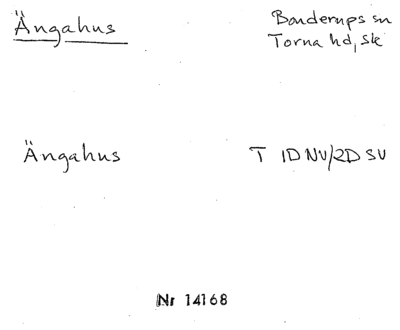 Ängahus
Bonderups sn
Torna hd, Sk
Ängahus
T 1D NV/2D SV
Nr 14168